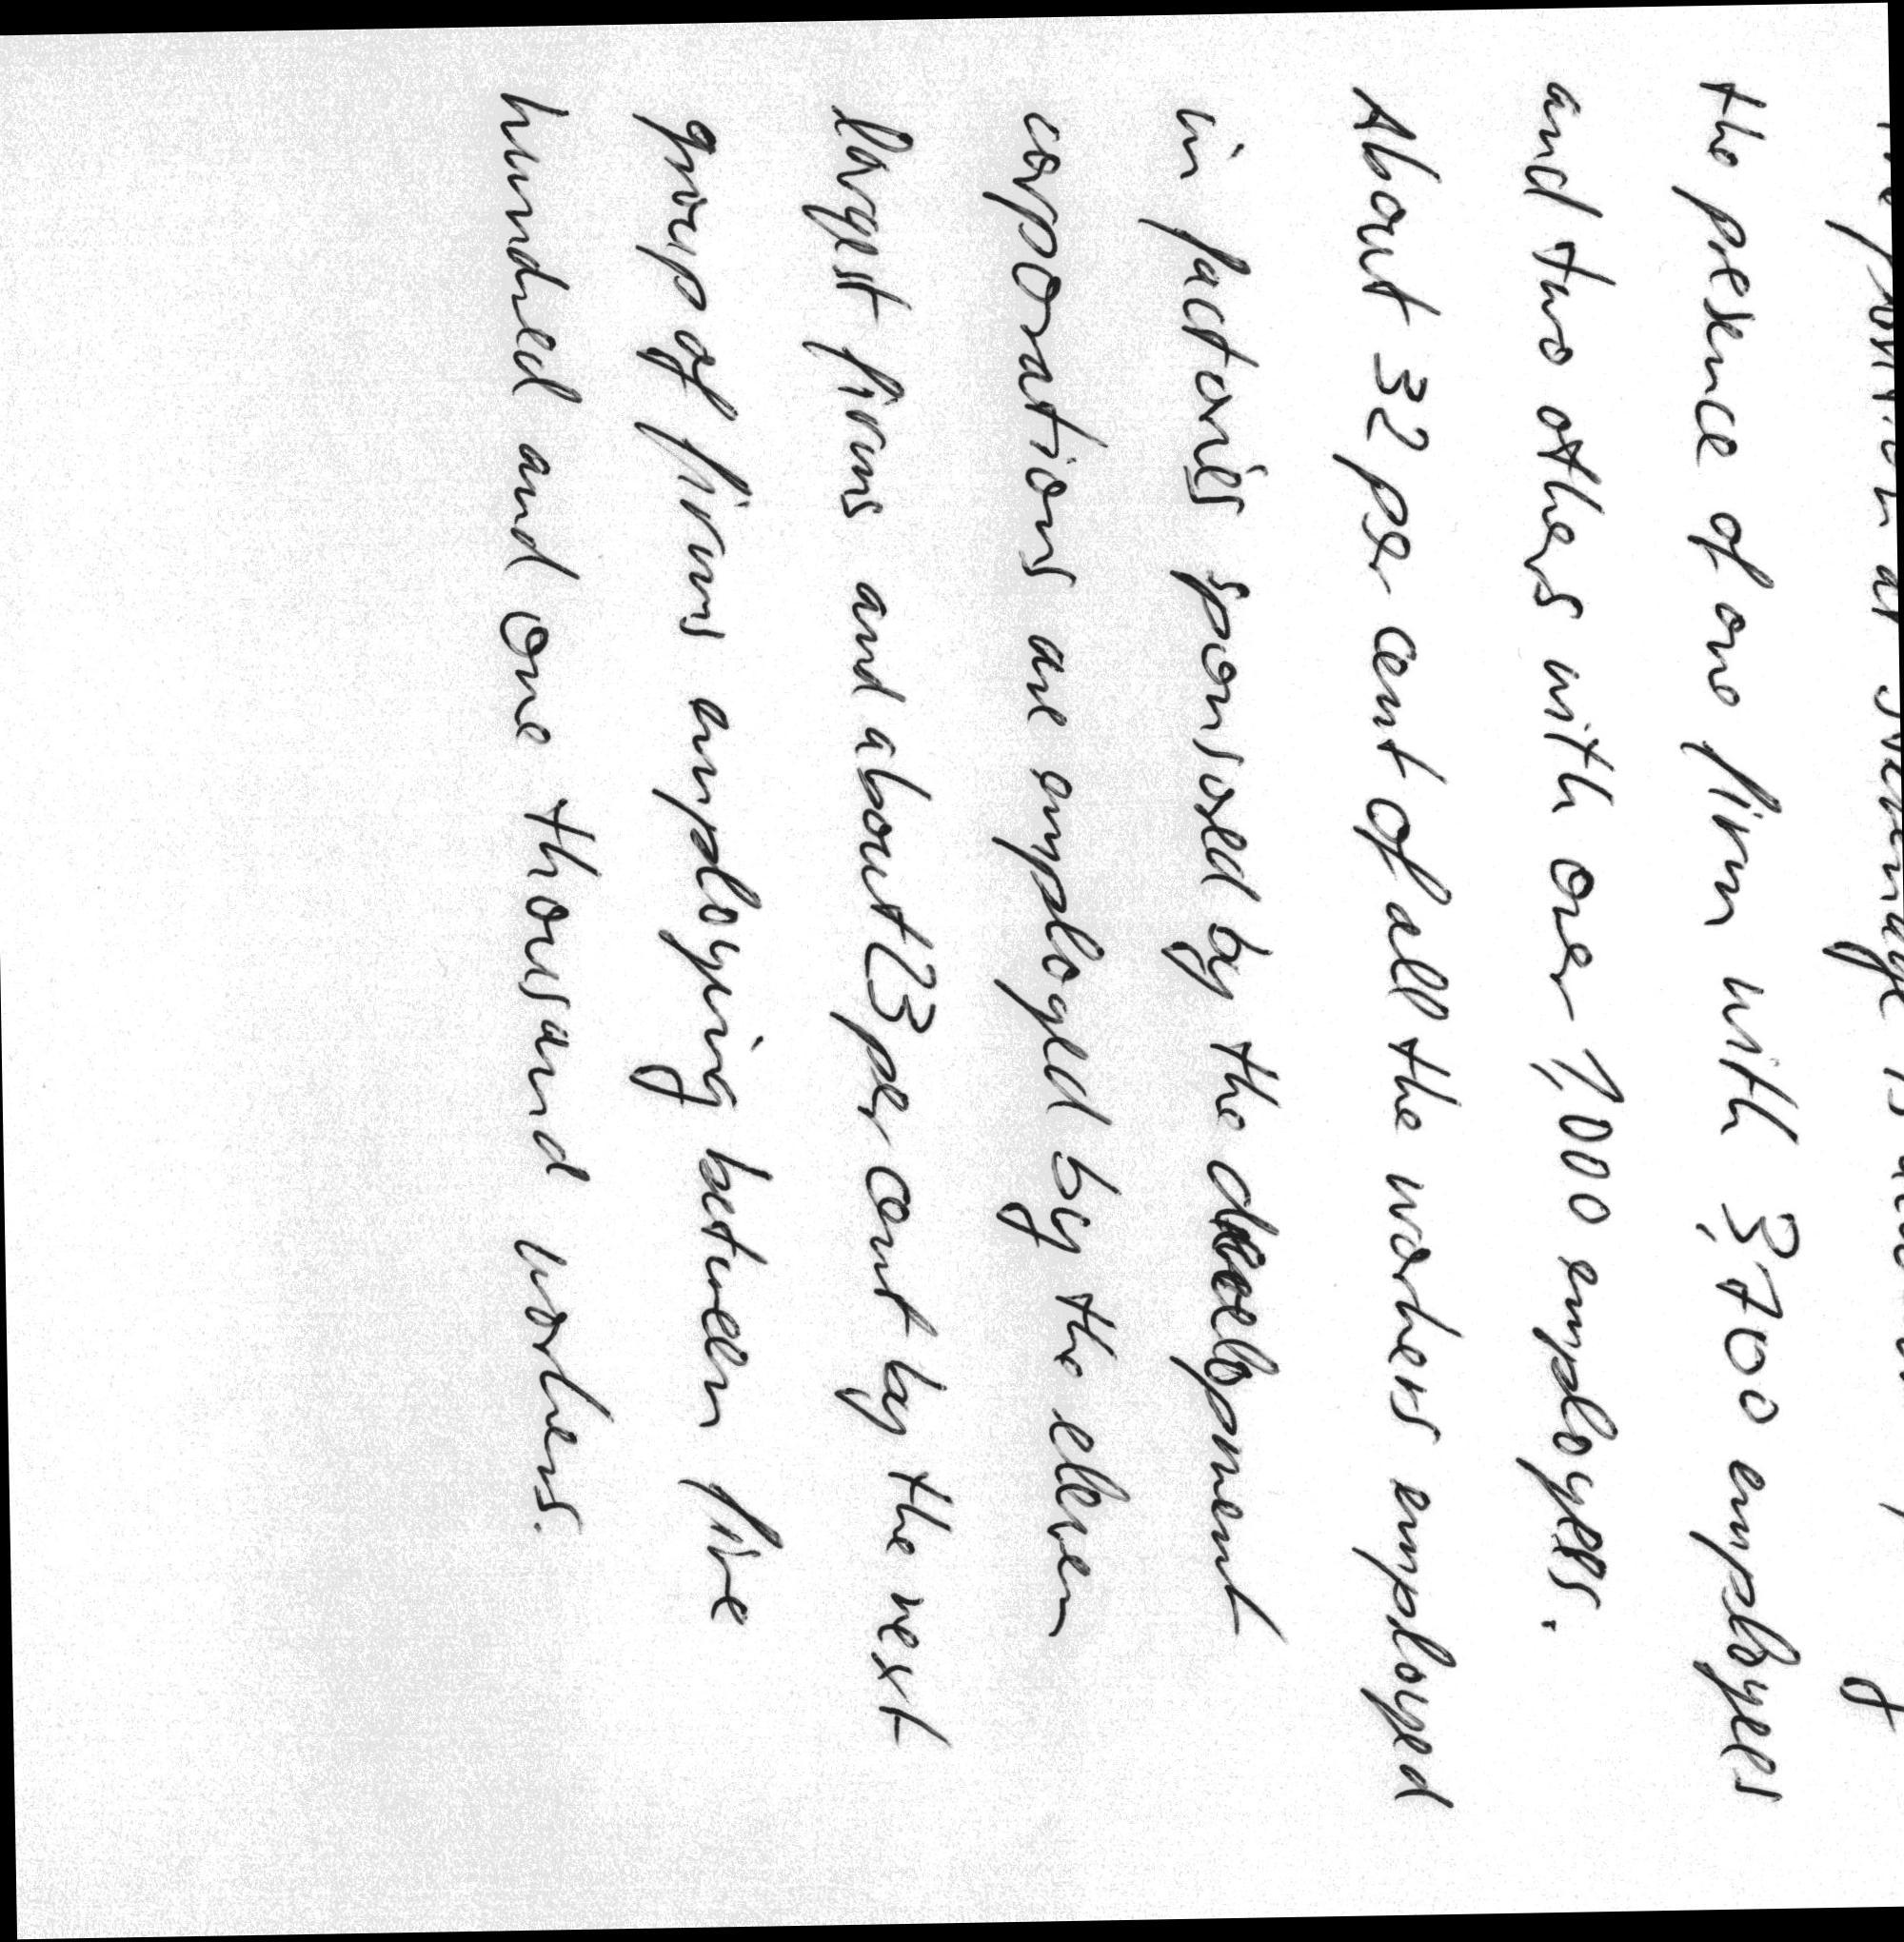 position at Swanage is
the presence of one firm with 3,700 employees
and two others with over 1,000 employees.
About 32 per cent of all the workers employed
in factories sponsored by the development
corporations are employed by the eleven
largest firms and about 23 per cent by the next
group of firms employing between five
hundred and one thousand workers.